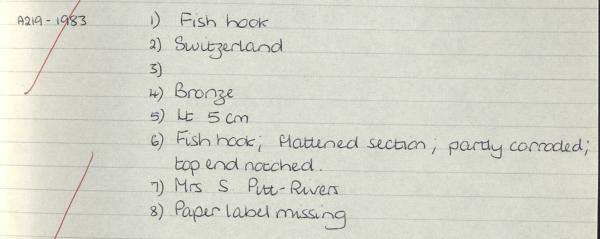 A219-1983 1) Fish hook
2) Switzerland
3)
4) Bronze
5) Lt 5 cm
6) Fish hook; flattened section; partly corroded;
top end notched.
7) Mrs S Pitt-Rivers
8) Paper label missing